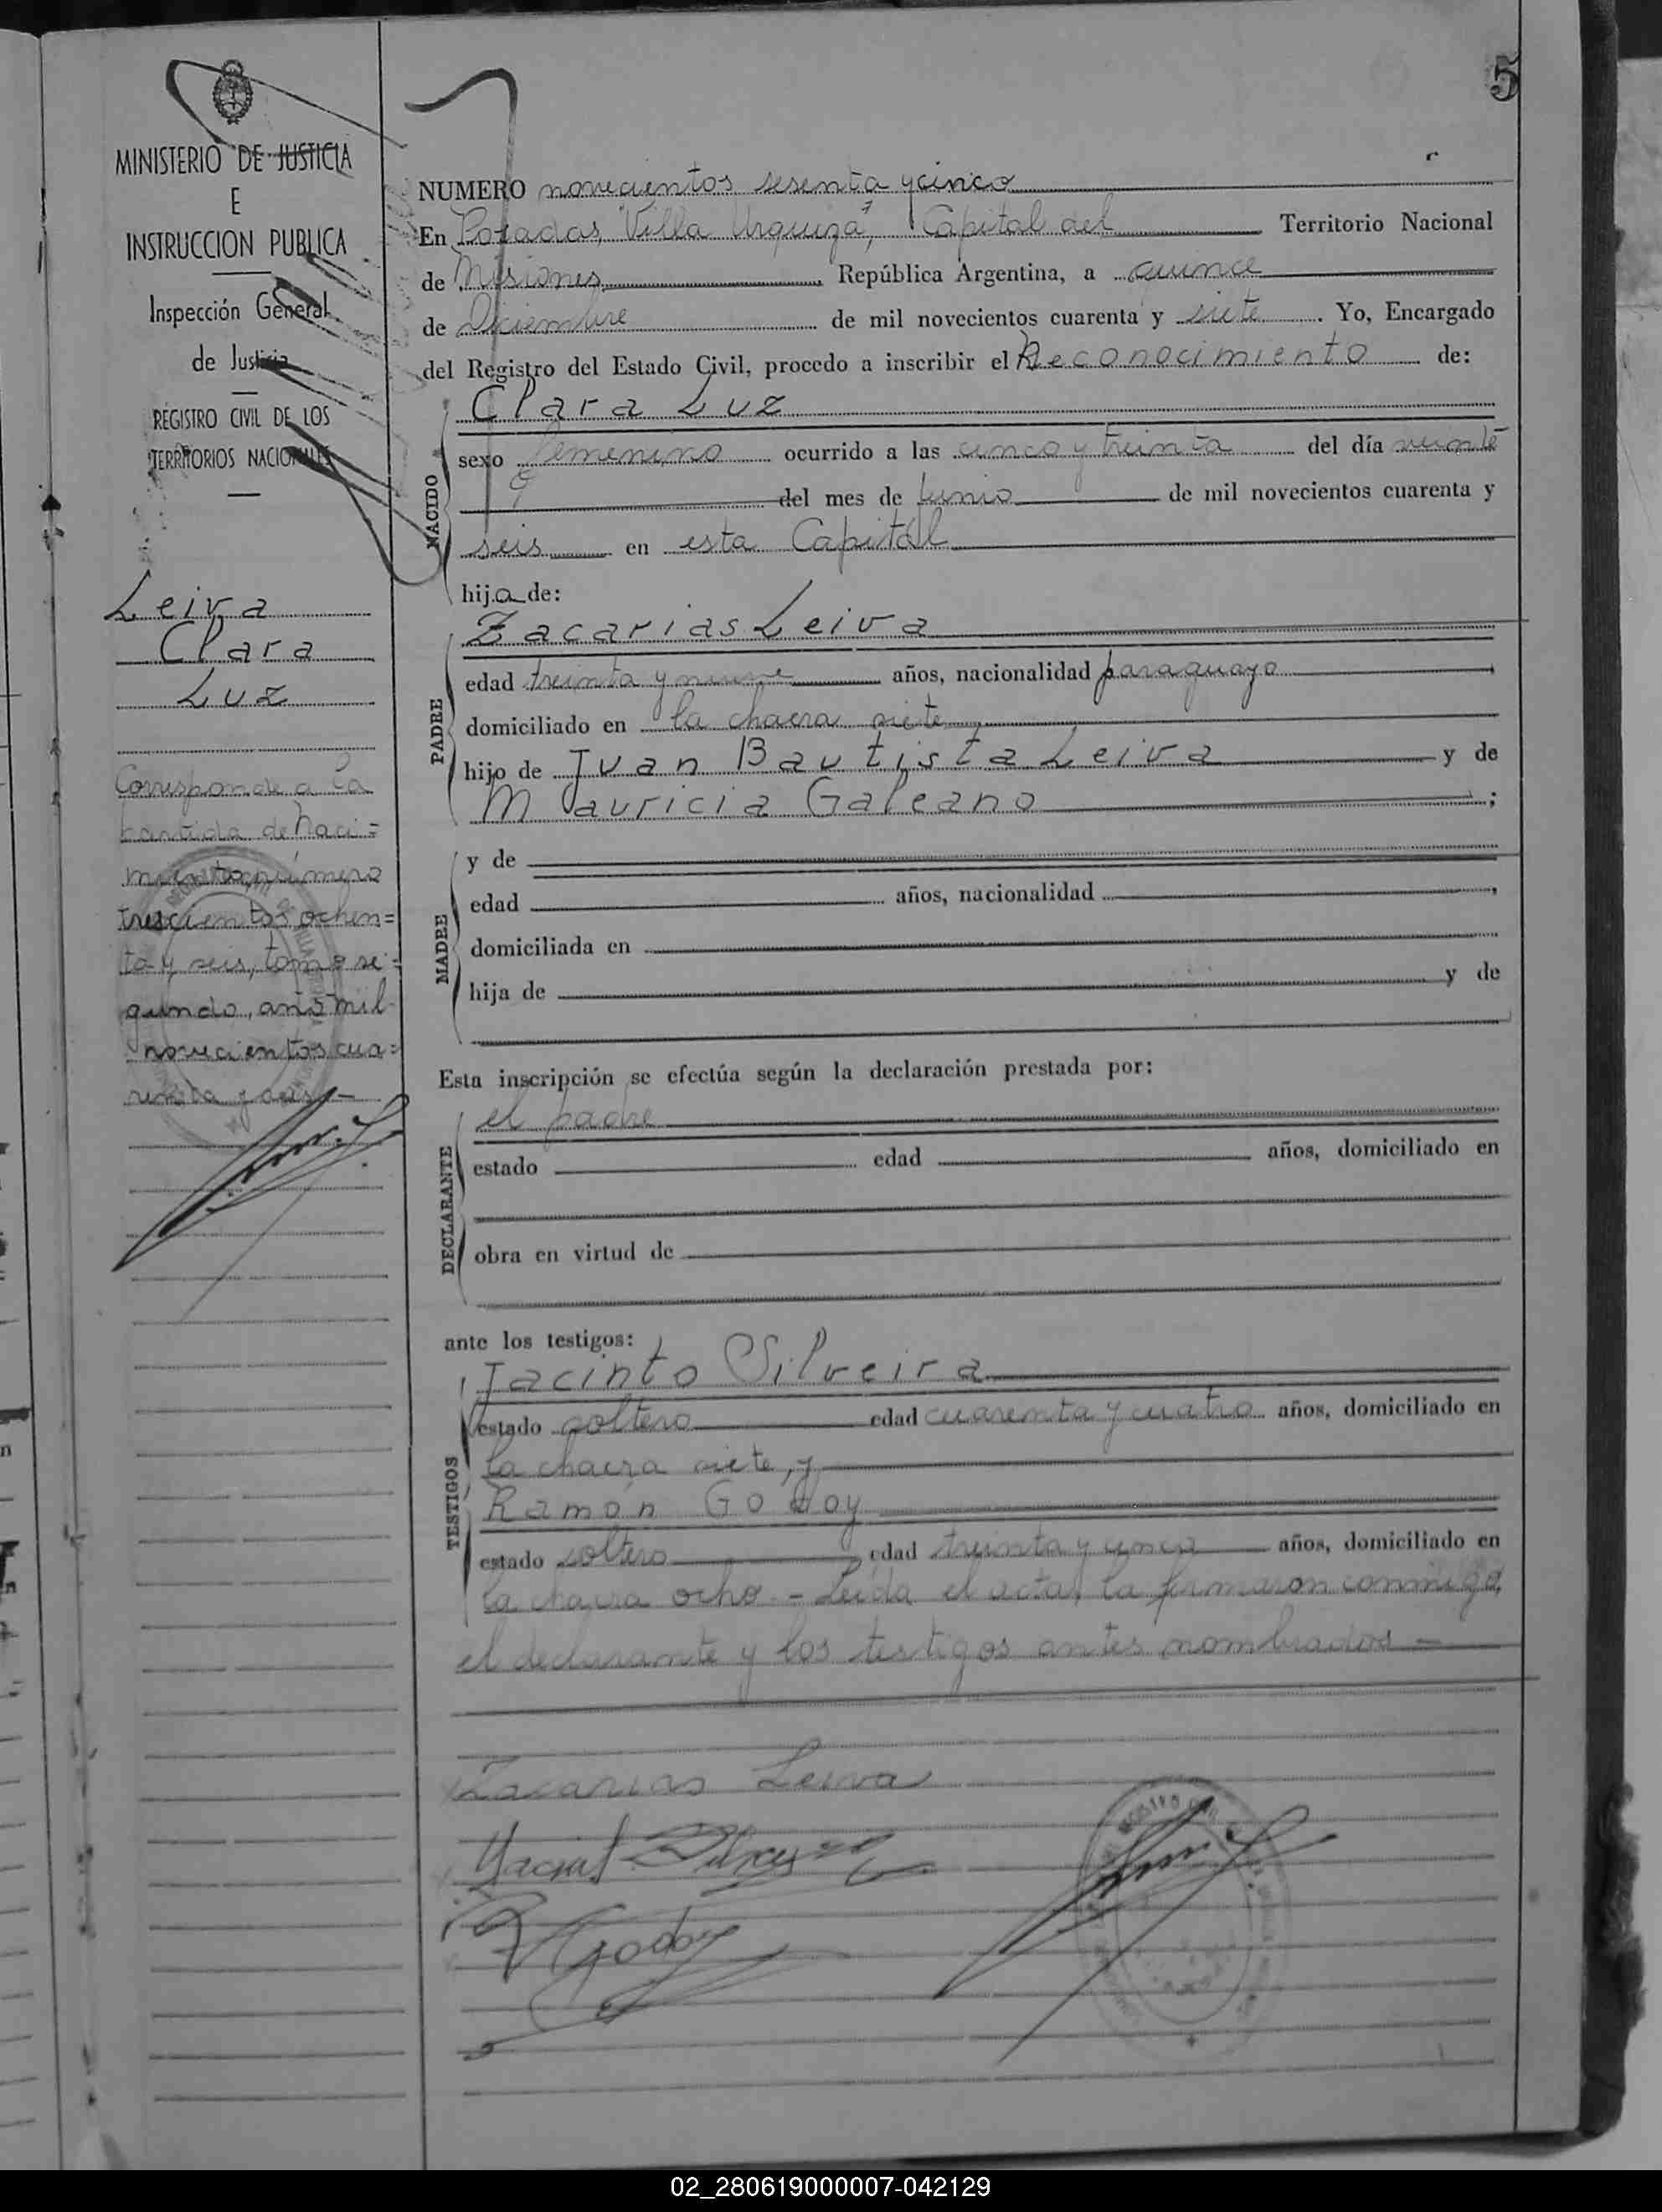 5
MINISTERIO DE JUSTICIA
E
INSTRUCCION PUBLICA
Inspección General
de Justicia
REGISTRO CIVIL DE LOS
TERRITORIOS NACIONALES
Leiva
Clara
Luz
Corresponde a la
partida de naci=
miento número
trescientos ochen=
ta y seis, tomo se=
gundo, año mil
novecientos cua=
renta y seis.-
NUMERO novecientos sesenta y cinco
En Posadas, "Villa Urquiza", Capital del Territorio Nacional
de Misiones República Argentina, a quince
de Diciembre de mil novecientos cuarenta y siete. Yo, Encargado
del Registro del Estado Civil, procedo a inscribir el Reconocimiento de:
Clara Luz
NACIDO
sexo femenino ocurrido a las cinco y treinta del día veinte
del mes de Junio de mil novecientos cuarenta y
seis en esta Capital
hija de:
Zacarias Leiva
PADRE
edad treinta y nueve años, nacionalidad paraguayo
domiciliado en la chacra siete
hijo de Juan Bautista Leiva y de
Mauricia Galeano;
MADRE
y de
edad años, nacionalidad ,
domiciliada en
hija de y de
Esta inscripción se efectúa según la declaración prestada por:
DECLARANTE
el padre
estado edad años, domiciliado en
obra en virtud de
ante los testigos:
TESTIGOS
Jacinto Silveira
estado soltero edad cuarenta y cuatro años, domiciliado en
la chacra siete, y
Ramón Godoy
estado soltero edad treinta y cinco años, domiciliado en
la chacra ocho.- Leída el acta, la firmaron conmigo,
el declarante y los testigos antes nombrados.-
Zacarias Leiva
R Godoy
02_280619000007-042129